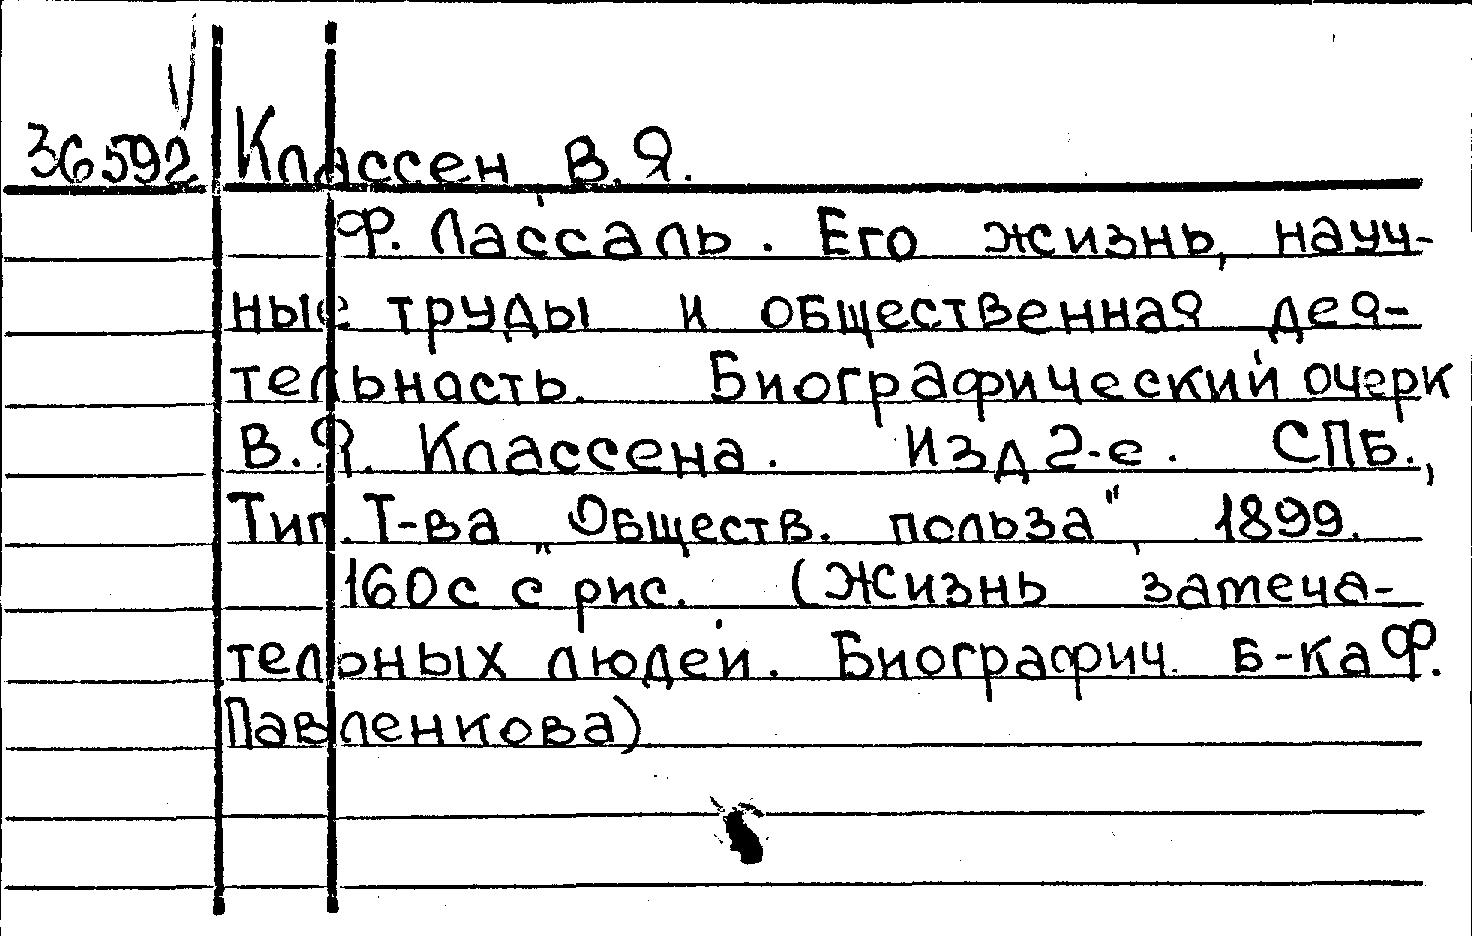 36592 Классен, В.Я.
Ф. Лассаль. Его жизнь, науч-
ные труды и общественная дея-
тельность. Биографический очерк
В.Я. Классена. Изд 2-е. СПБ.,
Тип. Т-ва „Обществ. польза", 1899.
160 с с рис. (Жизнь замеча-
тельных людей. Биографич. Б-ка Ф.
Павленкова)